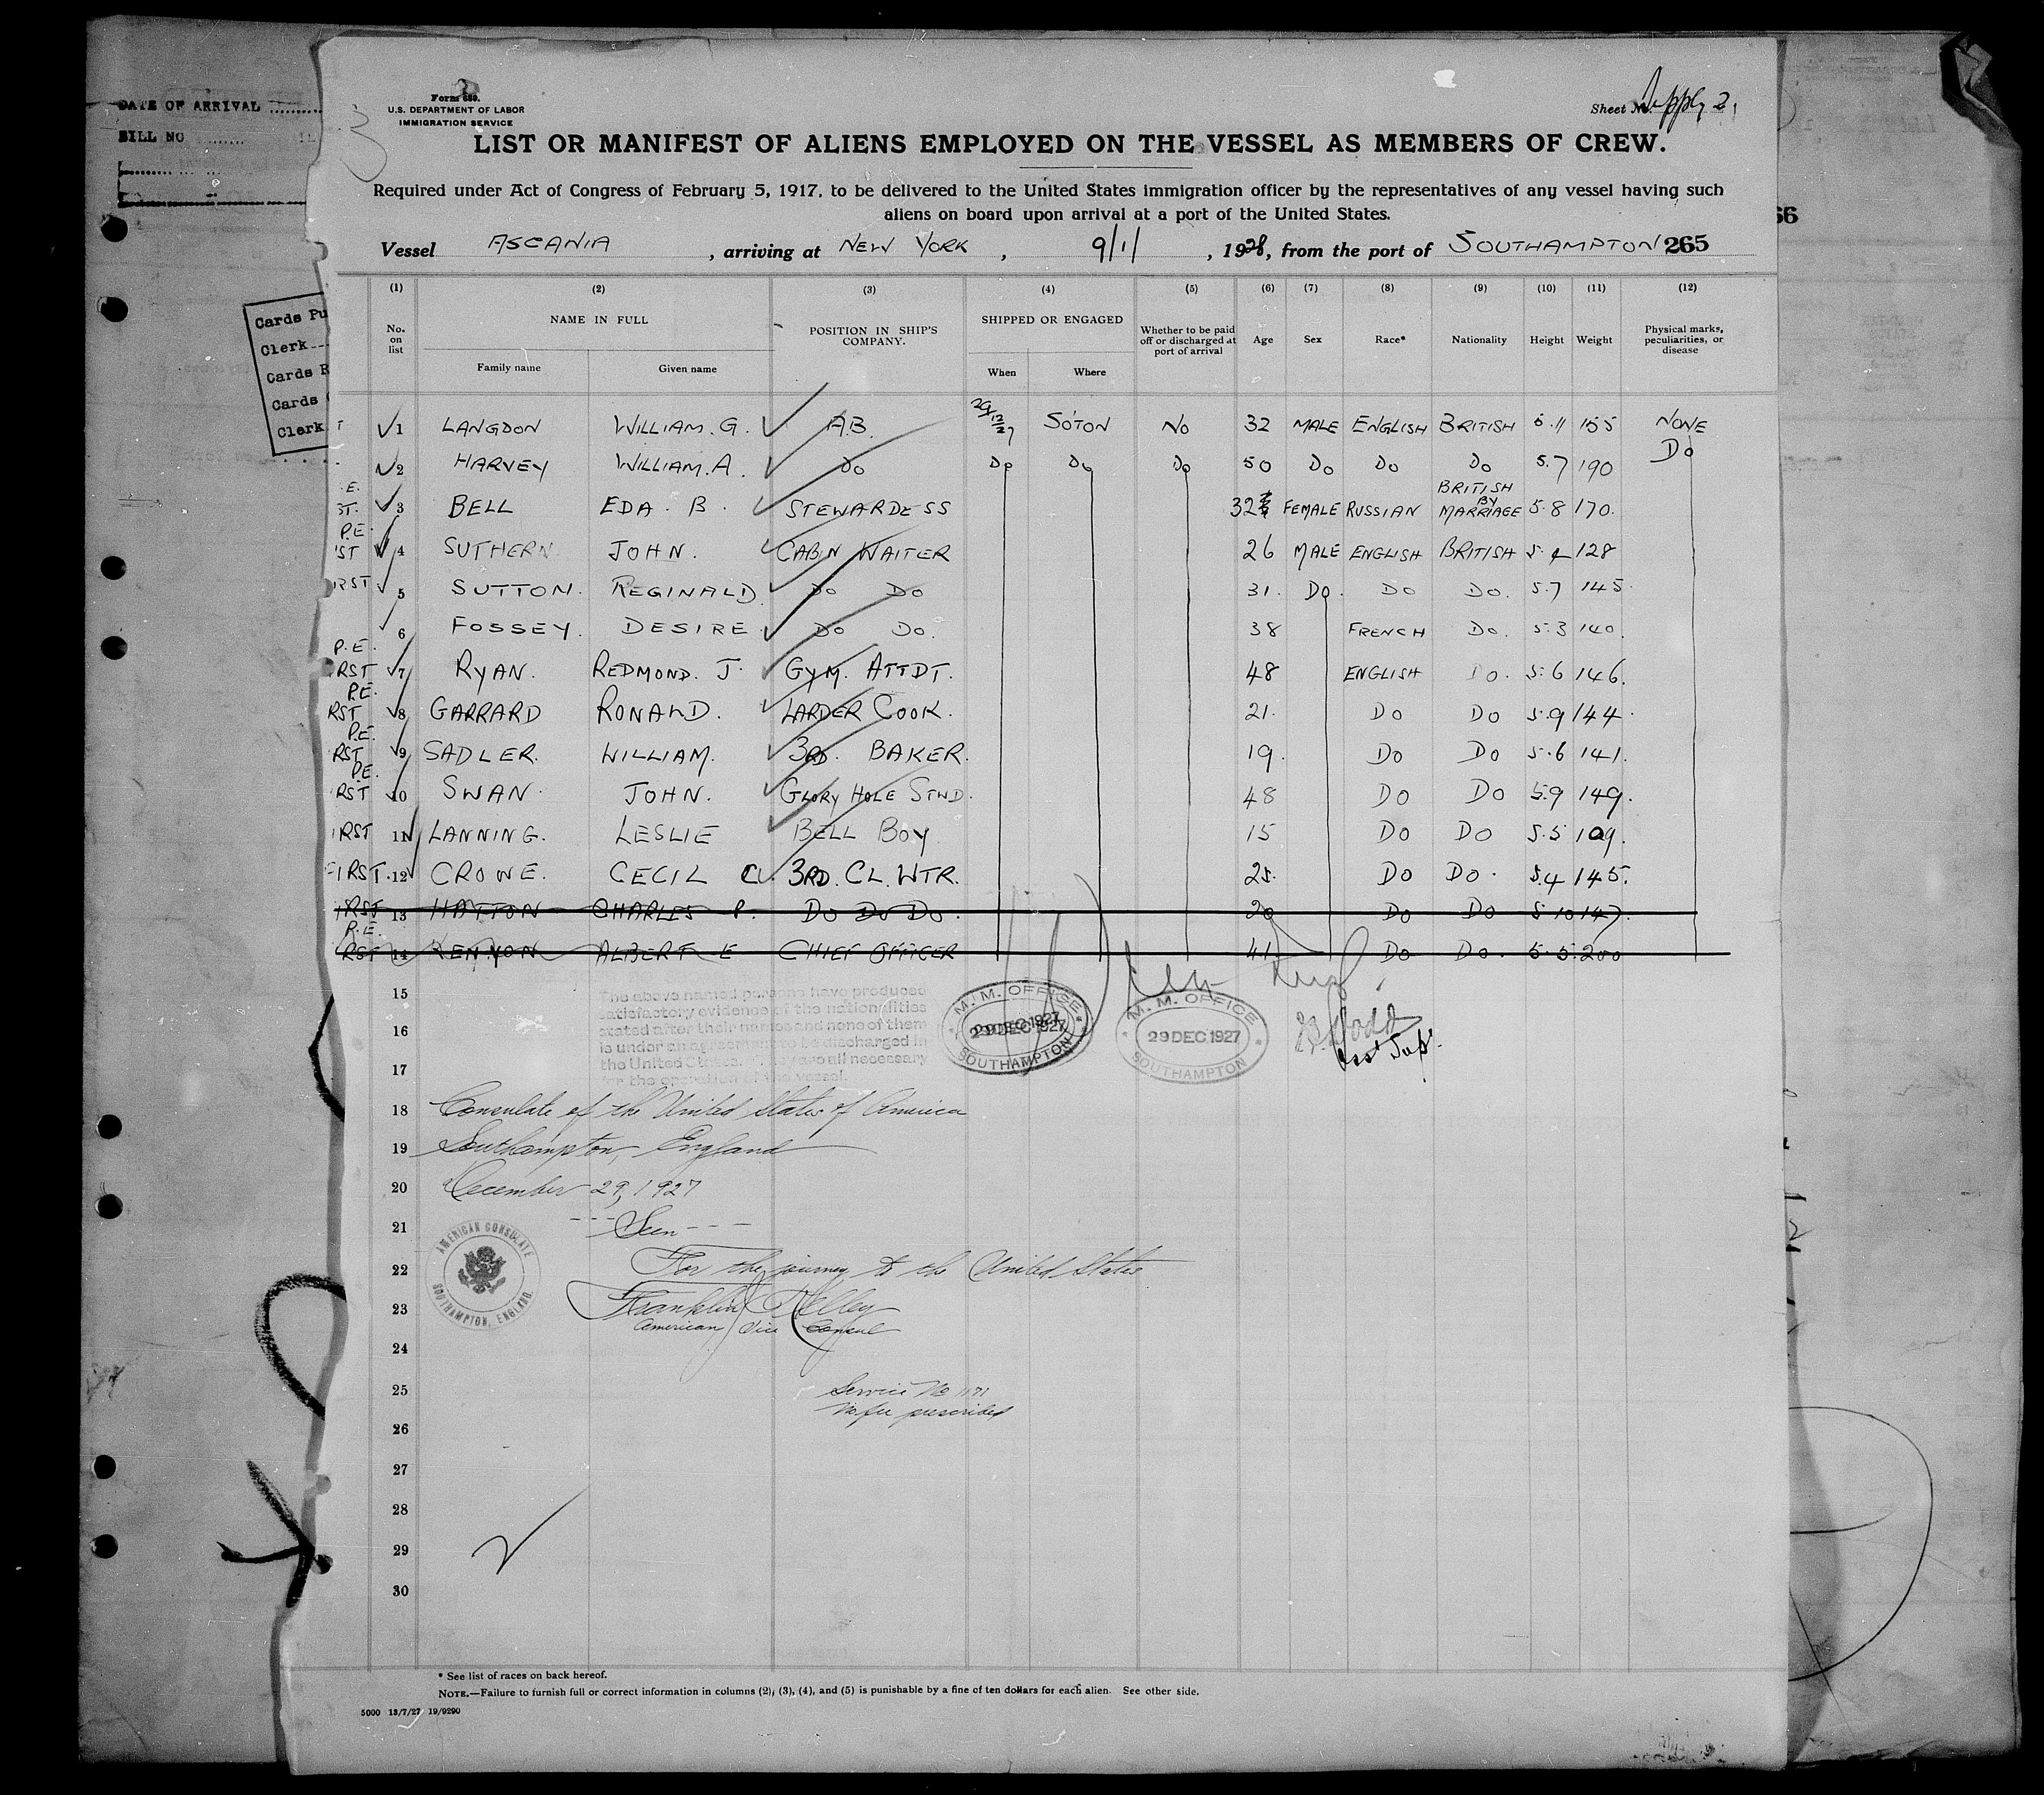 DATE OF ARRIVAL
BILL NO
Cards Pu
Clerk
Cards R
Cards
Clerk
66
Form 680.
U.S. DEPARTMENT OF LABOR
IMMIGRATION SERVICE
Sheet No. Supply 2
LIST OR MANIFEST OF ALIENS EMPLOYED ON THE VESSEL AS MEMBERS OF CREW.
Required under Act of Congress of February 5, 1917, to be delivered to the United States immigration officer by the representatives of any vessel having such
aliens on board upon arrival at a port of the United States.
Vessel ASCANIA, arriving at NEW YORK, 9/1/, 1928, from the port of SOUTHAMPTON 265
(1) (2) (3) (4) (5) (6) (7) (8) (9) (10) (11) (12)
No. on list NAME IN FULL POSITION IN SHIP'S COMPANY. SHIPPED OR ENGAGED Whether to be paid off or discharged at port of arrival Age Sex Race* Nationality Height Weight Physical marks, peculiarities, or disease
Family name Given name When Where
1 LANGDON WILLIAM. G. A.B. 29/12/27 SO'TON NO 32 MALE ENGLISH BRITISH 5.11 155 NONE
2 HARVEY WILLIAM. A. DO DO DO DO 50 DO DO DO 5.7 190 DO
3 BELL EDA. B. STEWARDESS 32 FEMALE RUSSIAN BRITISH BY MARRIAGE 5.8 170.
P.E.
ST 4 SUTHERN JOHN. CABIN WAITER 26 MALE ENGLISH BRITISH 5. 128
IRST 5 SUTTON. REGINALD. DO DO 31. DO. DO DO. 5.7 145.
6 FOSSEY. DESIRE. DO DO. 38 FRENCH DO. 5.3 140.
P.E.
RST 7 RYAN. REDMOND. J. GYM. ATTDT. 48 ENGLISH DO. 5.6 146.
P.E.
RST 8 GARRARD RONALD. LARDER COOK. 21. DO DO 5.9 144.
P.E.
RST 9 SADLER. WILLIAM. 3RD. BAKER. 19. DO DO 5.6 141.
P.E.
RST 10 SWAN. JOHN. GLORY HOLE STWD. 48 DO DO 5.9 149.
IRST 11 LANNING. LESLIE BELL BOY 15 DO DO 5.5 109.
FIRST. 12 CROWE. CECIL C. 3RD. CL. WTR. 25. DO DO. 5.4 145.
IRST 13 HATTON CHARLES P. DO DO DO. 20 DO DO 5.10 147.
P.E.
RST 14 KENYON ALBERT E CHIEF OFFICER 41 DO DO. 5.5. 200
15
16
17
The above named persons have produced
satisfactory evidence of the nationalities
stated after their names and none of them
is under an agreement to be discharged in
the United States. They are all necessary
for the operation of the vessel.
M. M. OFFICE
29 DEC 1927
SOUTHAMPTON
M. M. OFFICE
29 DEC 1927
SOUTHAMPTON
18 Consulate of the United States of America
19 Southampton, England
20 December 29, 1927
21 ---Seen---
22 For the journey to the United States
23 Franklin Kelley
American Vice Consul
AMERICAN CONSULATE
SOUTHAMPTON, ENGLAND.
24
25 Service No 1171
No fee prescribed
26
27
28
29
30
* See list of races on back hereof.
NOTE.—Failure to furnish full or correct information in columns (2), (3), (4), and (5) is punishable by a fine of ten dollars for each alien. See other side.
5000 13/7/27 19/9290